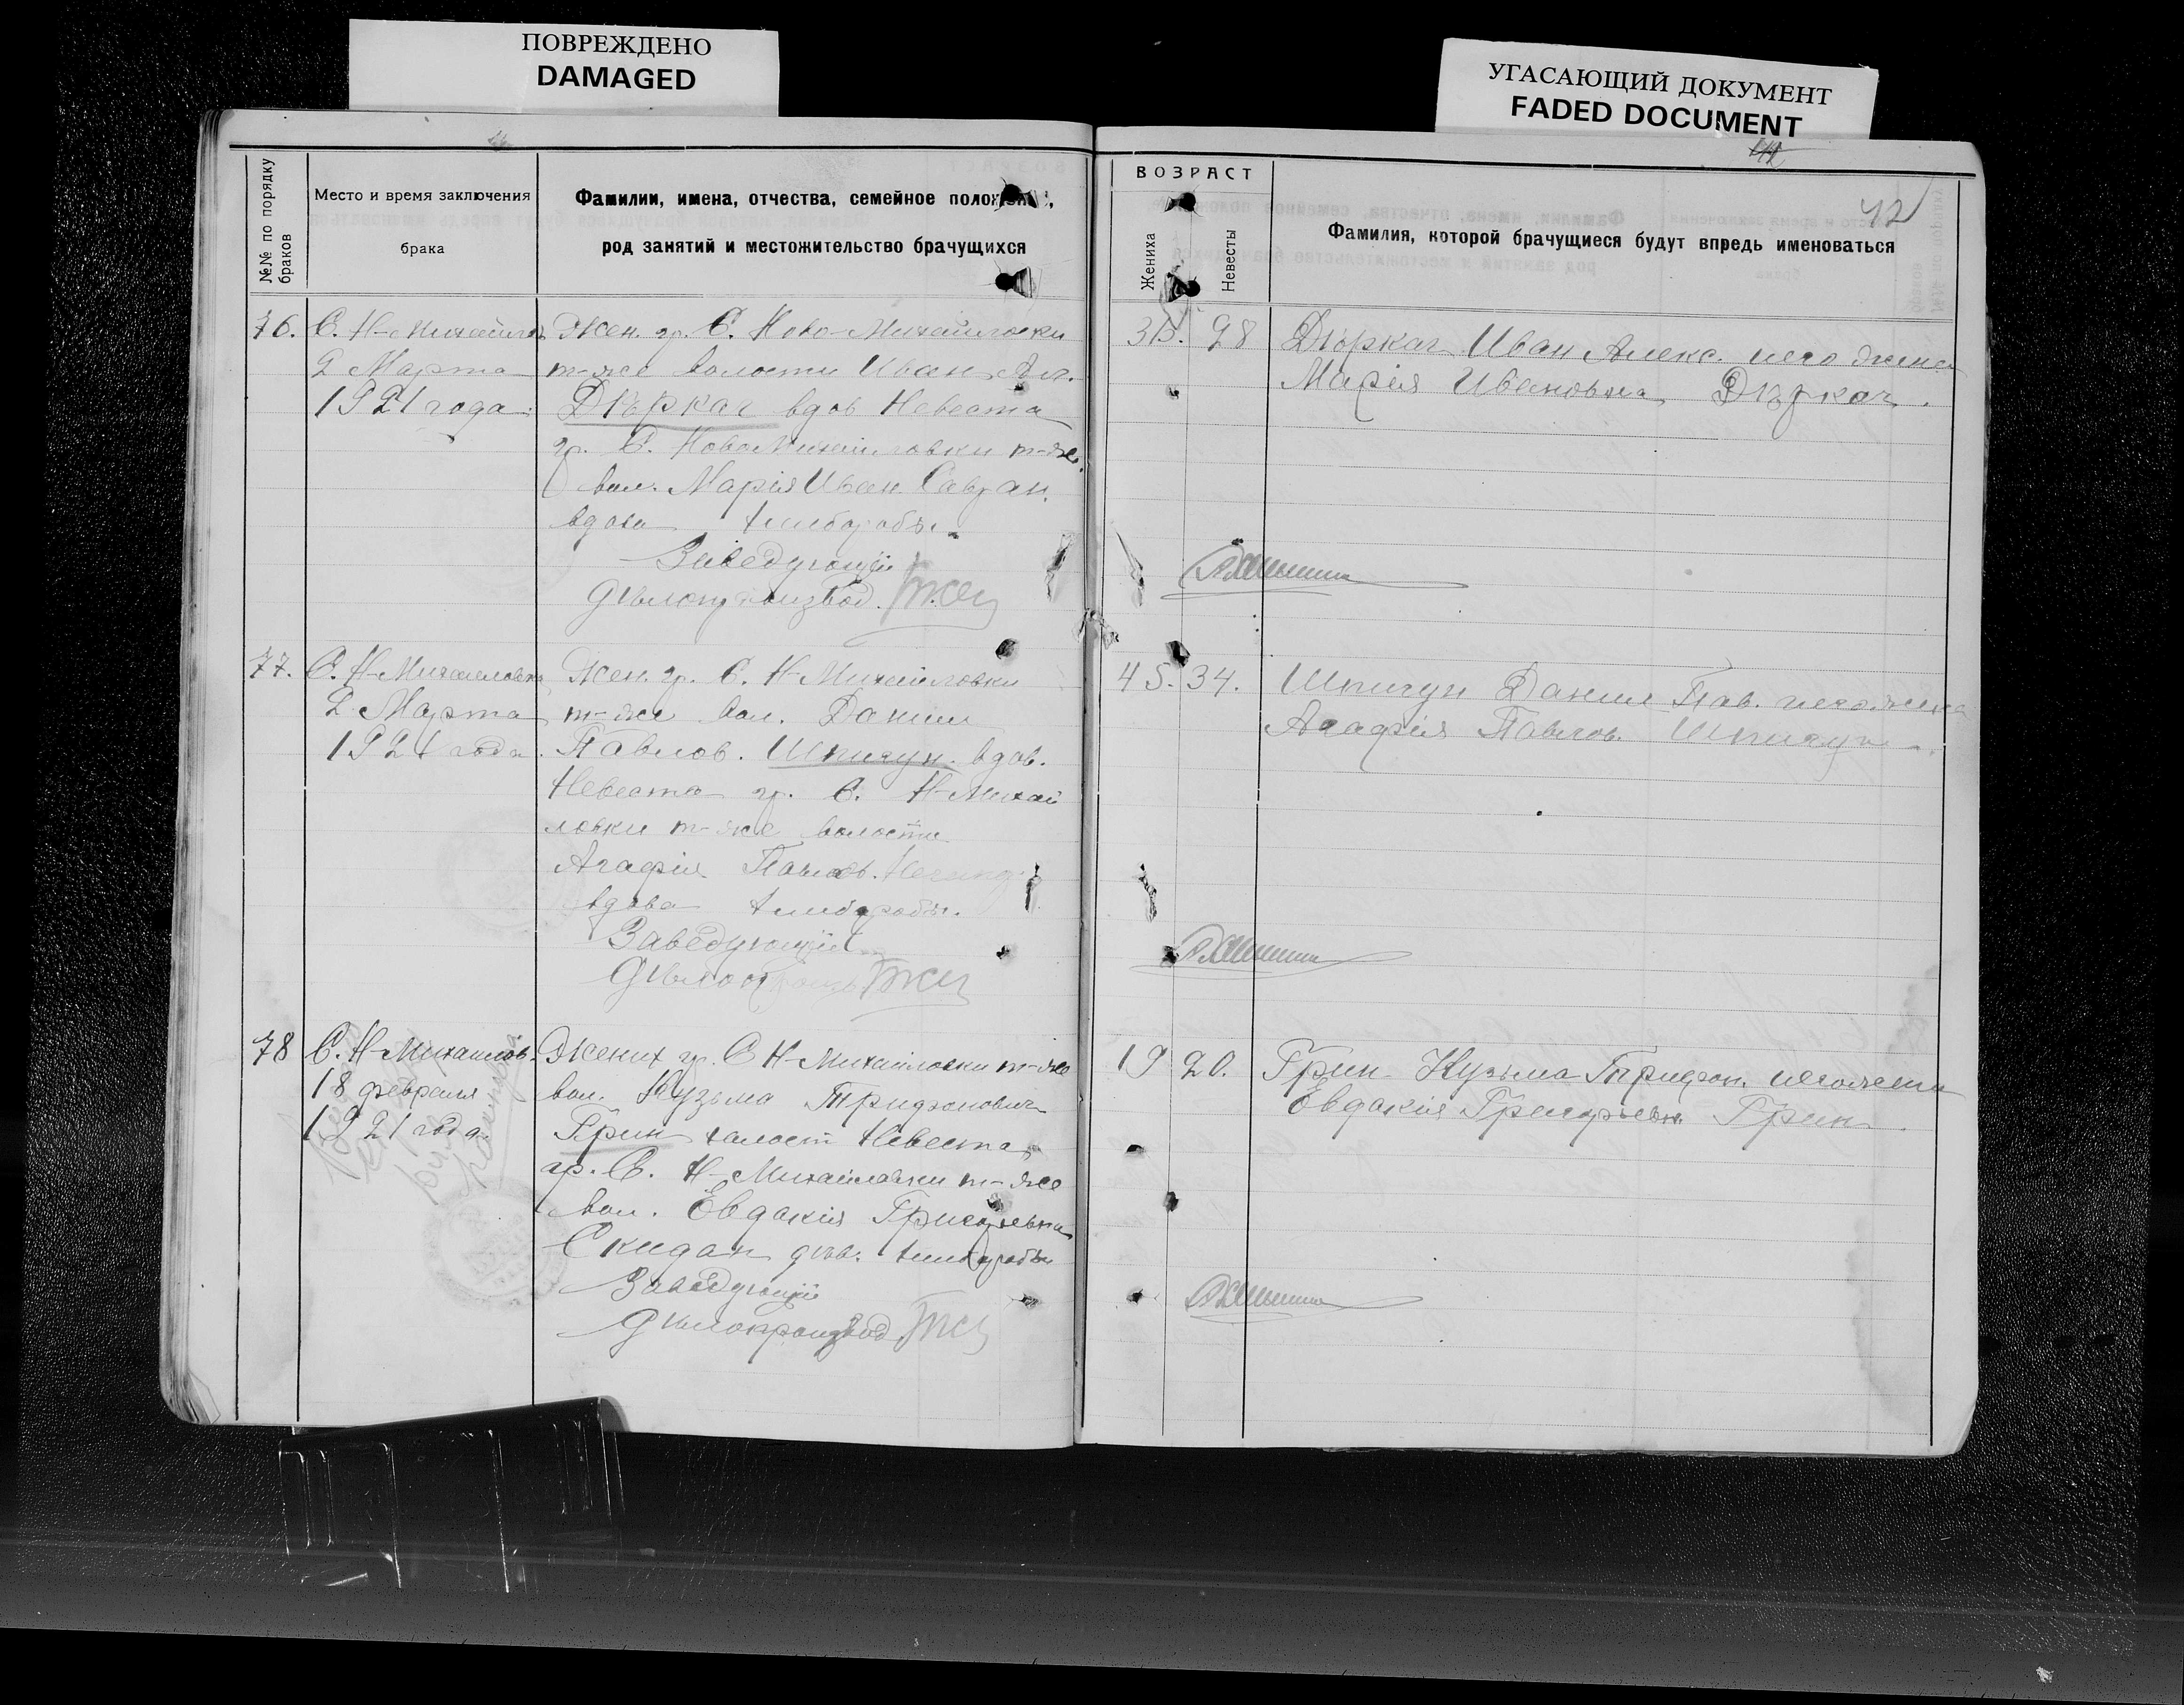 ПОВРЕЖДЕНО
DAMAGED
УГАСАЮЩИЙ ДОКУМЕНТ
FADED DOCUMENT
42
№№ по порядку браков
Место и время заключения
брака
Фамилии, имена, отчества, семейное положение,
род занятий и местожительство брачущихся
ВОЗРАСТ
Жениха
Невесты
Фамилия, которой брачущиеся будут впредь именоваться
76.
С. Н-Михайлов
2 Марта
1921 года.
Жен. гр. С. Ново-Михайловки
т-же волости Иван Ал.
Дѣркач вдов Невеста
гр. С. НовоМихайловки т-же
вол. Марія Иван. Савран.
вдова хлѣборобы.
Завѣдующій
Дѣлопроизвод.
35. 28
Дѣркач Иван Алекс. и его жена
Марія Ивановна Дѣркач.
77.
С. Н-Михайловк
2 Марта
1921 года.
Жен. гр. С. Н-Михайловки
т-же вол. Данiил
Павлов. Шпигун. вдов.
Невеста гр. С. Н-Михай
ловки т-же волости
Агафія Павлов.
вдова хлѣборобы.
Завѣдующій
45. 34.
Шпигун Данiил Пав. и его жена
Агафія Павлов. Шпигун.
78
С. Н-Михайлов.
18 февраля
1921 года
Жених гр. С Н-Михайловки т-же
вол. Кузьма Трифонович
Грин холост Невеста
гр. С. Н-Михайловки т-же
вол. Евдакія Григорьевна
Скидан дѣв. хлѣборобы
Завѣдующій
Дѣлопроизвод
19 20.
Грин Кузьма Трифон. и его жена
Евдакія Григорьевн. Грин.